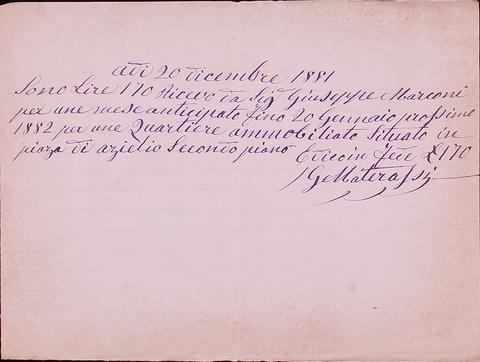 Adi 20 dicembre 1881
Sono Lire 170 Ricevo da Sig Giuseppe Marconi
per une mese anticipato fino 20 Gennaio prossimo
1882 per une Quartiere ammobiliato Situato in
piaza di azielio Secondo piano Edicoin fede £ 170
GeMaterassi